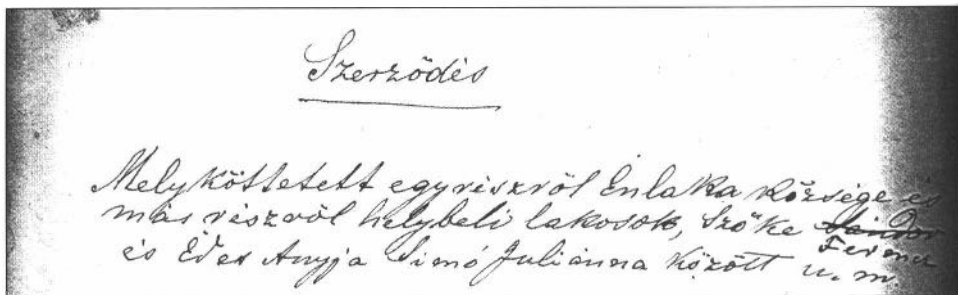 Szerződés
Mely köttetett egyrészről Énlaka községe és
más részről helybeli lakosok, Szőke Sándor
Ferencz
és Édes Anyja Simó Julianna között u. m.